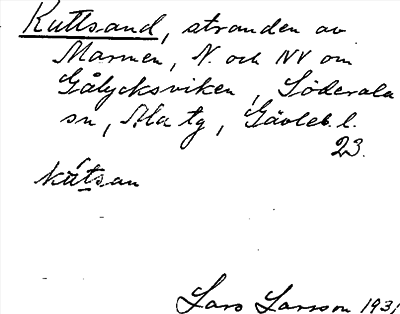 Kuttsand, stranden av
Marmen, N. och NV om
Gålycksviken, Söderala
sn, Ala tg, Gävleb. l.
23.
kútsan
Lars Larsson 1931